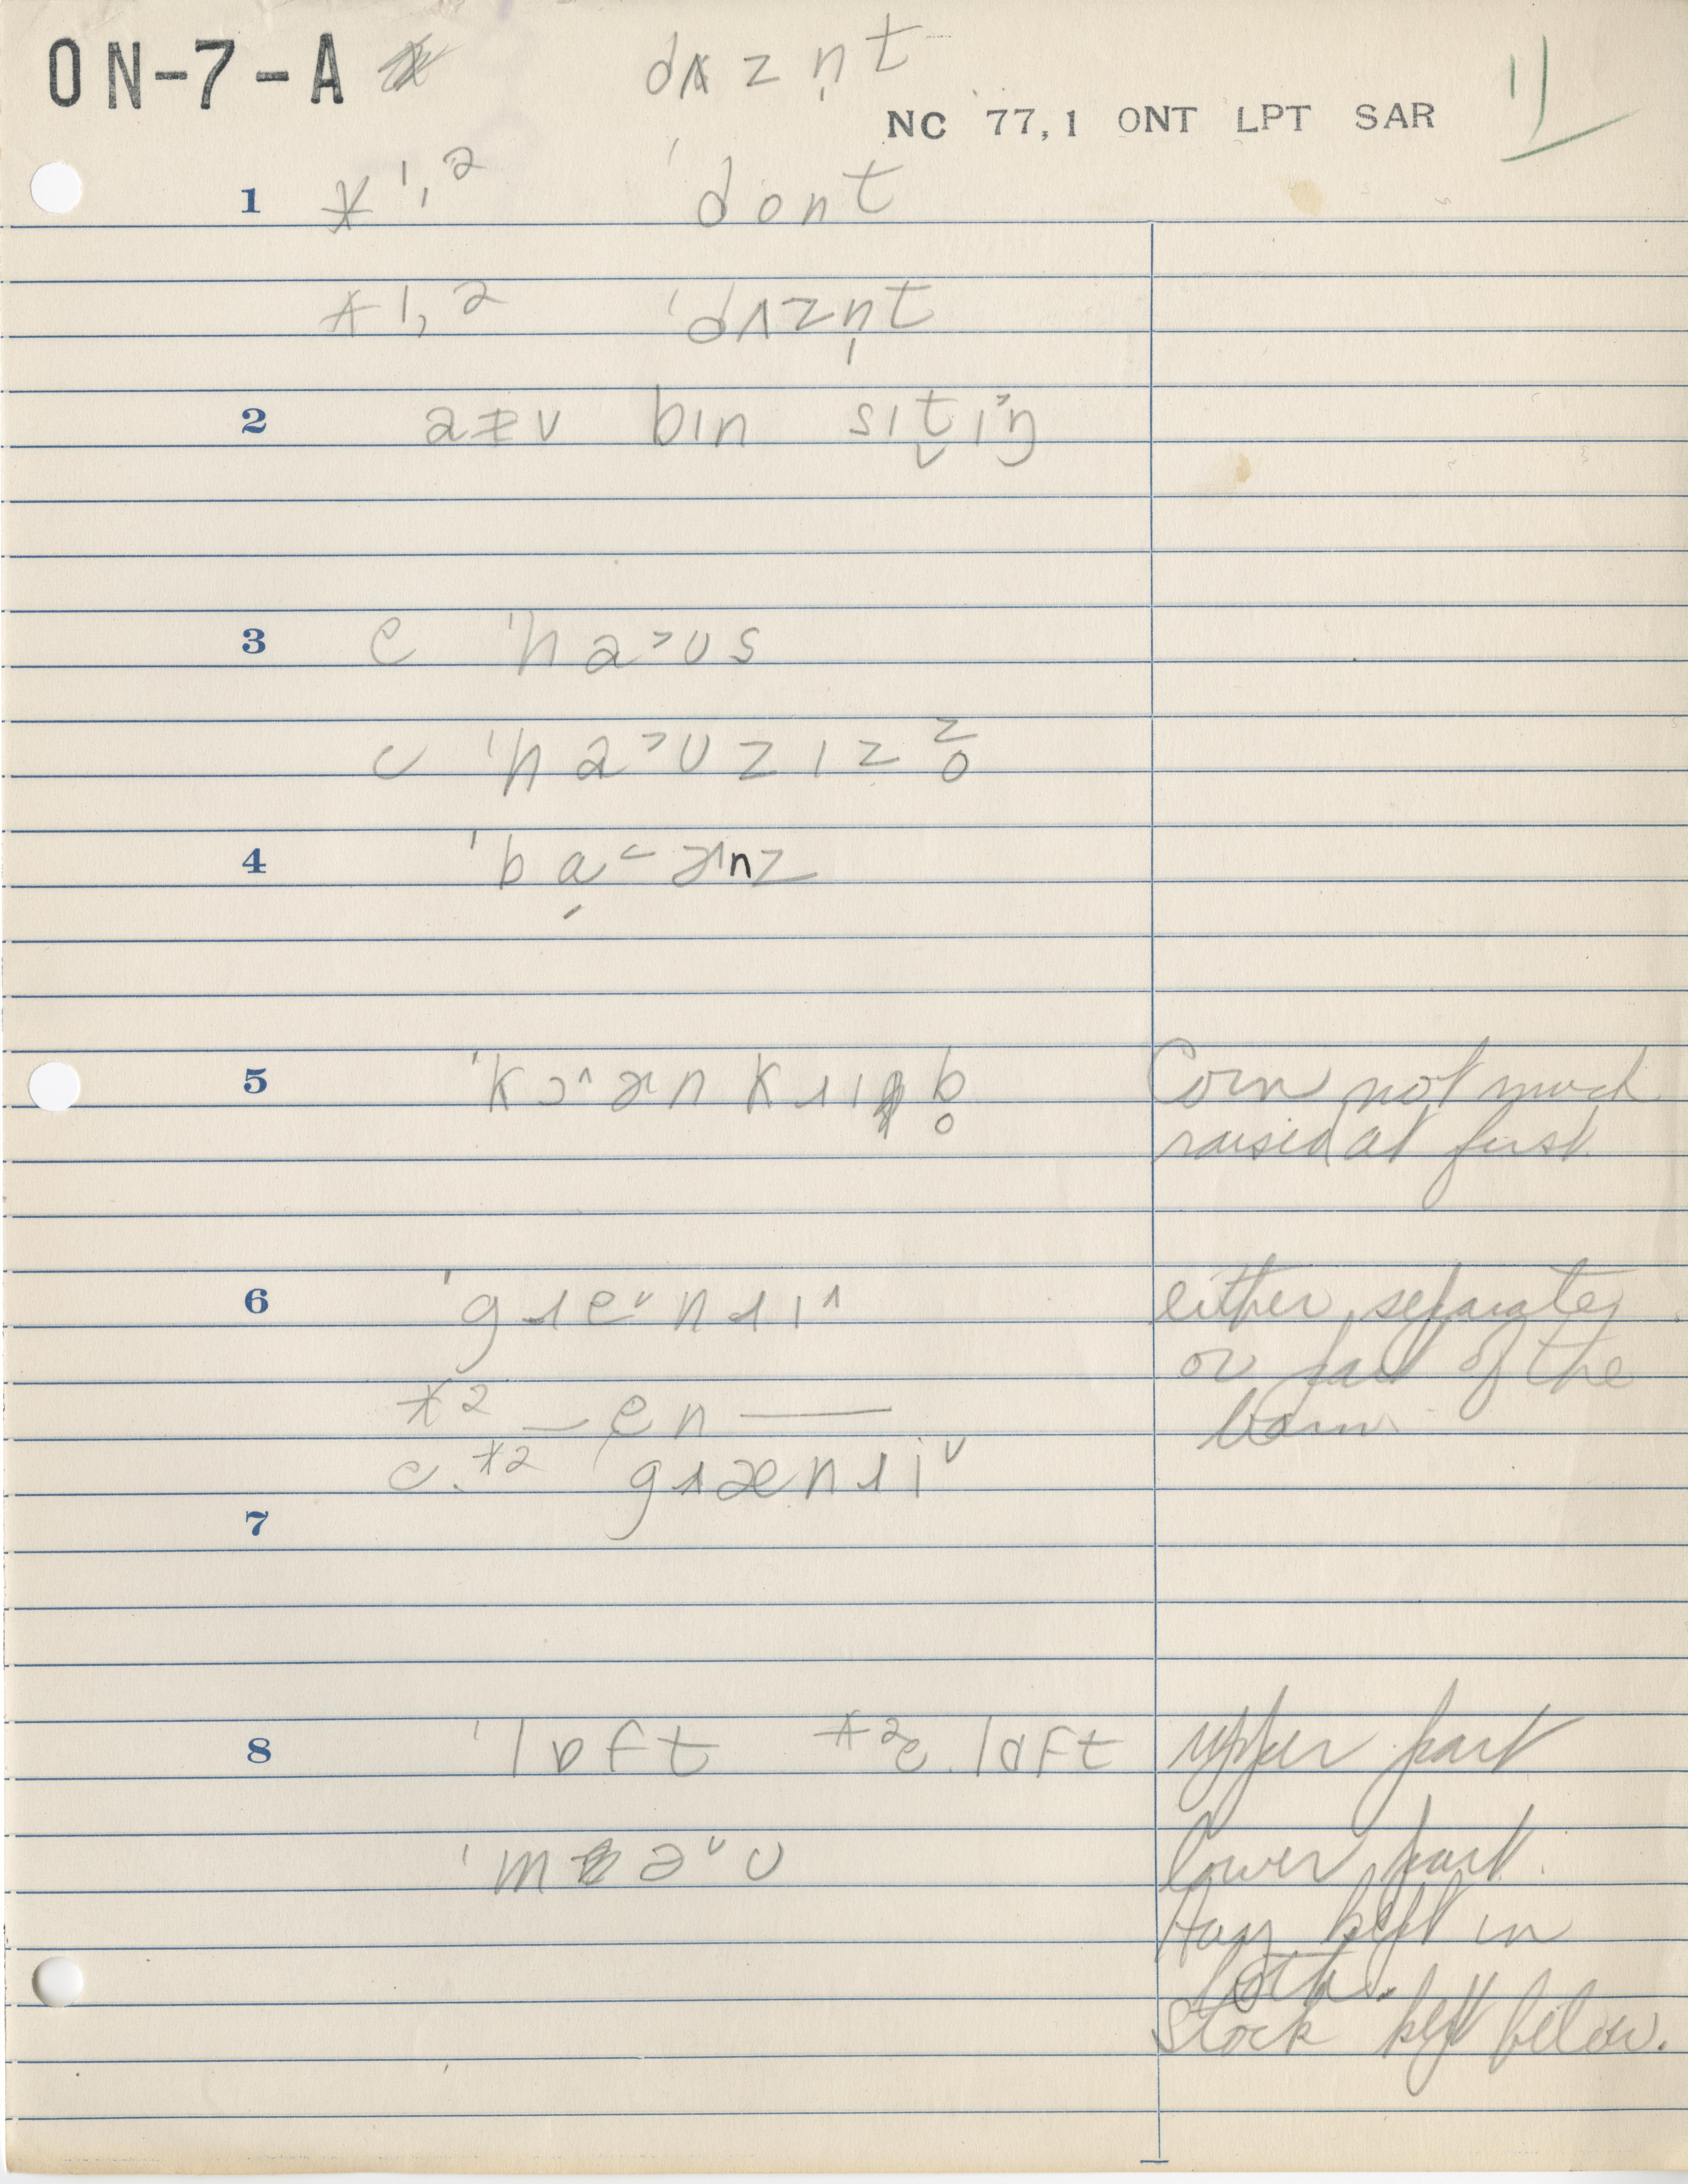 ON-7-A dʌzn̩t
NC 77,1 ONT LPT SAR 11
1 *1,2 'dont
*1,2 'dʌzn̩t
2 bɪn sɪt̬ɪ˃ŋ
3 c 'ha˃ʊs
c 'ha˃ʊzɪz z̥
4 'ba˂ɚnz
5 'kɔ˄ɚn kɹɪb̥ Corn not much
raised at first
6 'gɹe˅nɹɪ˄ either separate
or part of the
*2 — en — barn
c. *2 'gɹænɹi˅
7
8 'lɒft *2 c. lɑft upper part
'ma˅ʊ lower part.
Hay kept in
both.
Stock kept below.